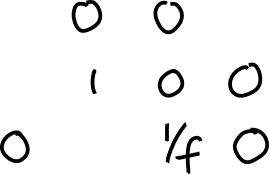 0 0
1 0 0
0 1/f 0